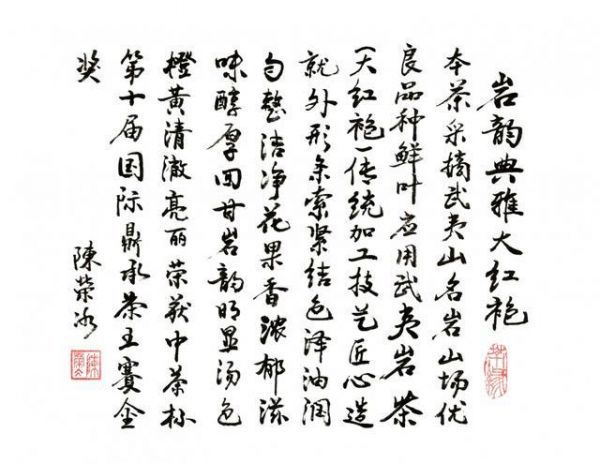 岩韵典雅大红袍
本茶采摘武夷山名岩山场优
良品种鲜叶应用武夷岩茶
(大红袍)传统加工技艺匠心造
就外形条索紧结色泽油润
匀整洁净花果香浓郁滋
味醇厚回甘岩韵明显汤色
橙黄清澈亮丽荣获中茶杯
第十届国际鼎承茶王赛金
奖
陳榮冰